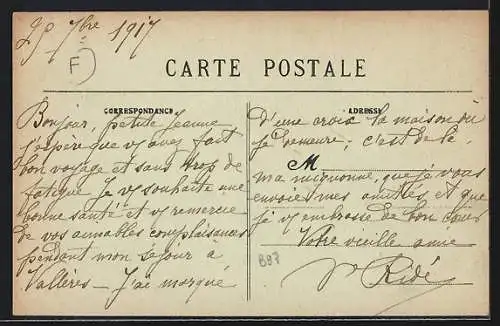 25 7bre 1917
F
CARTE POSTALE
CORRESPONDANCE
Bonjour, petite Jeanne
j'espère que vs avez fait
bon voyage et sans trop de
fatigue Je vs souhaite une
bonne santé et vs remercie
de vos aimables complaisances
pendant mon séjour à
Vallères – J'ai marqué
ADRESSE
D'une croix la maison où
je demeure, c'est de là
M
ma mignonne, que je vous
envoie mes amitiés et que
je vs embrasse de bon cœur
Votre vieille amie
Ridé
B97